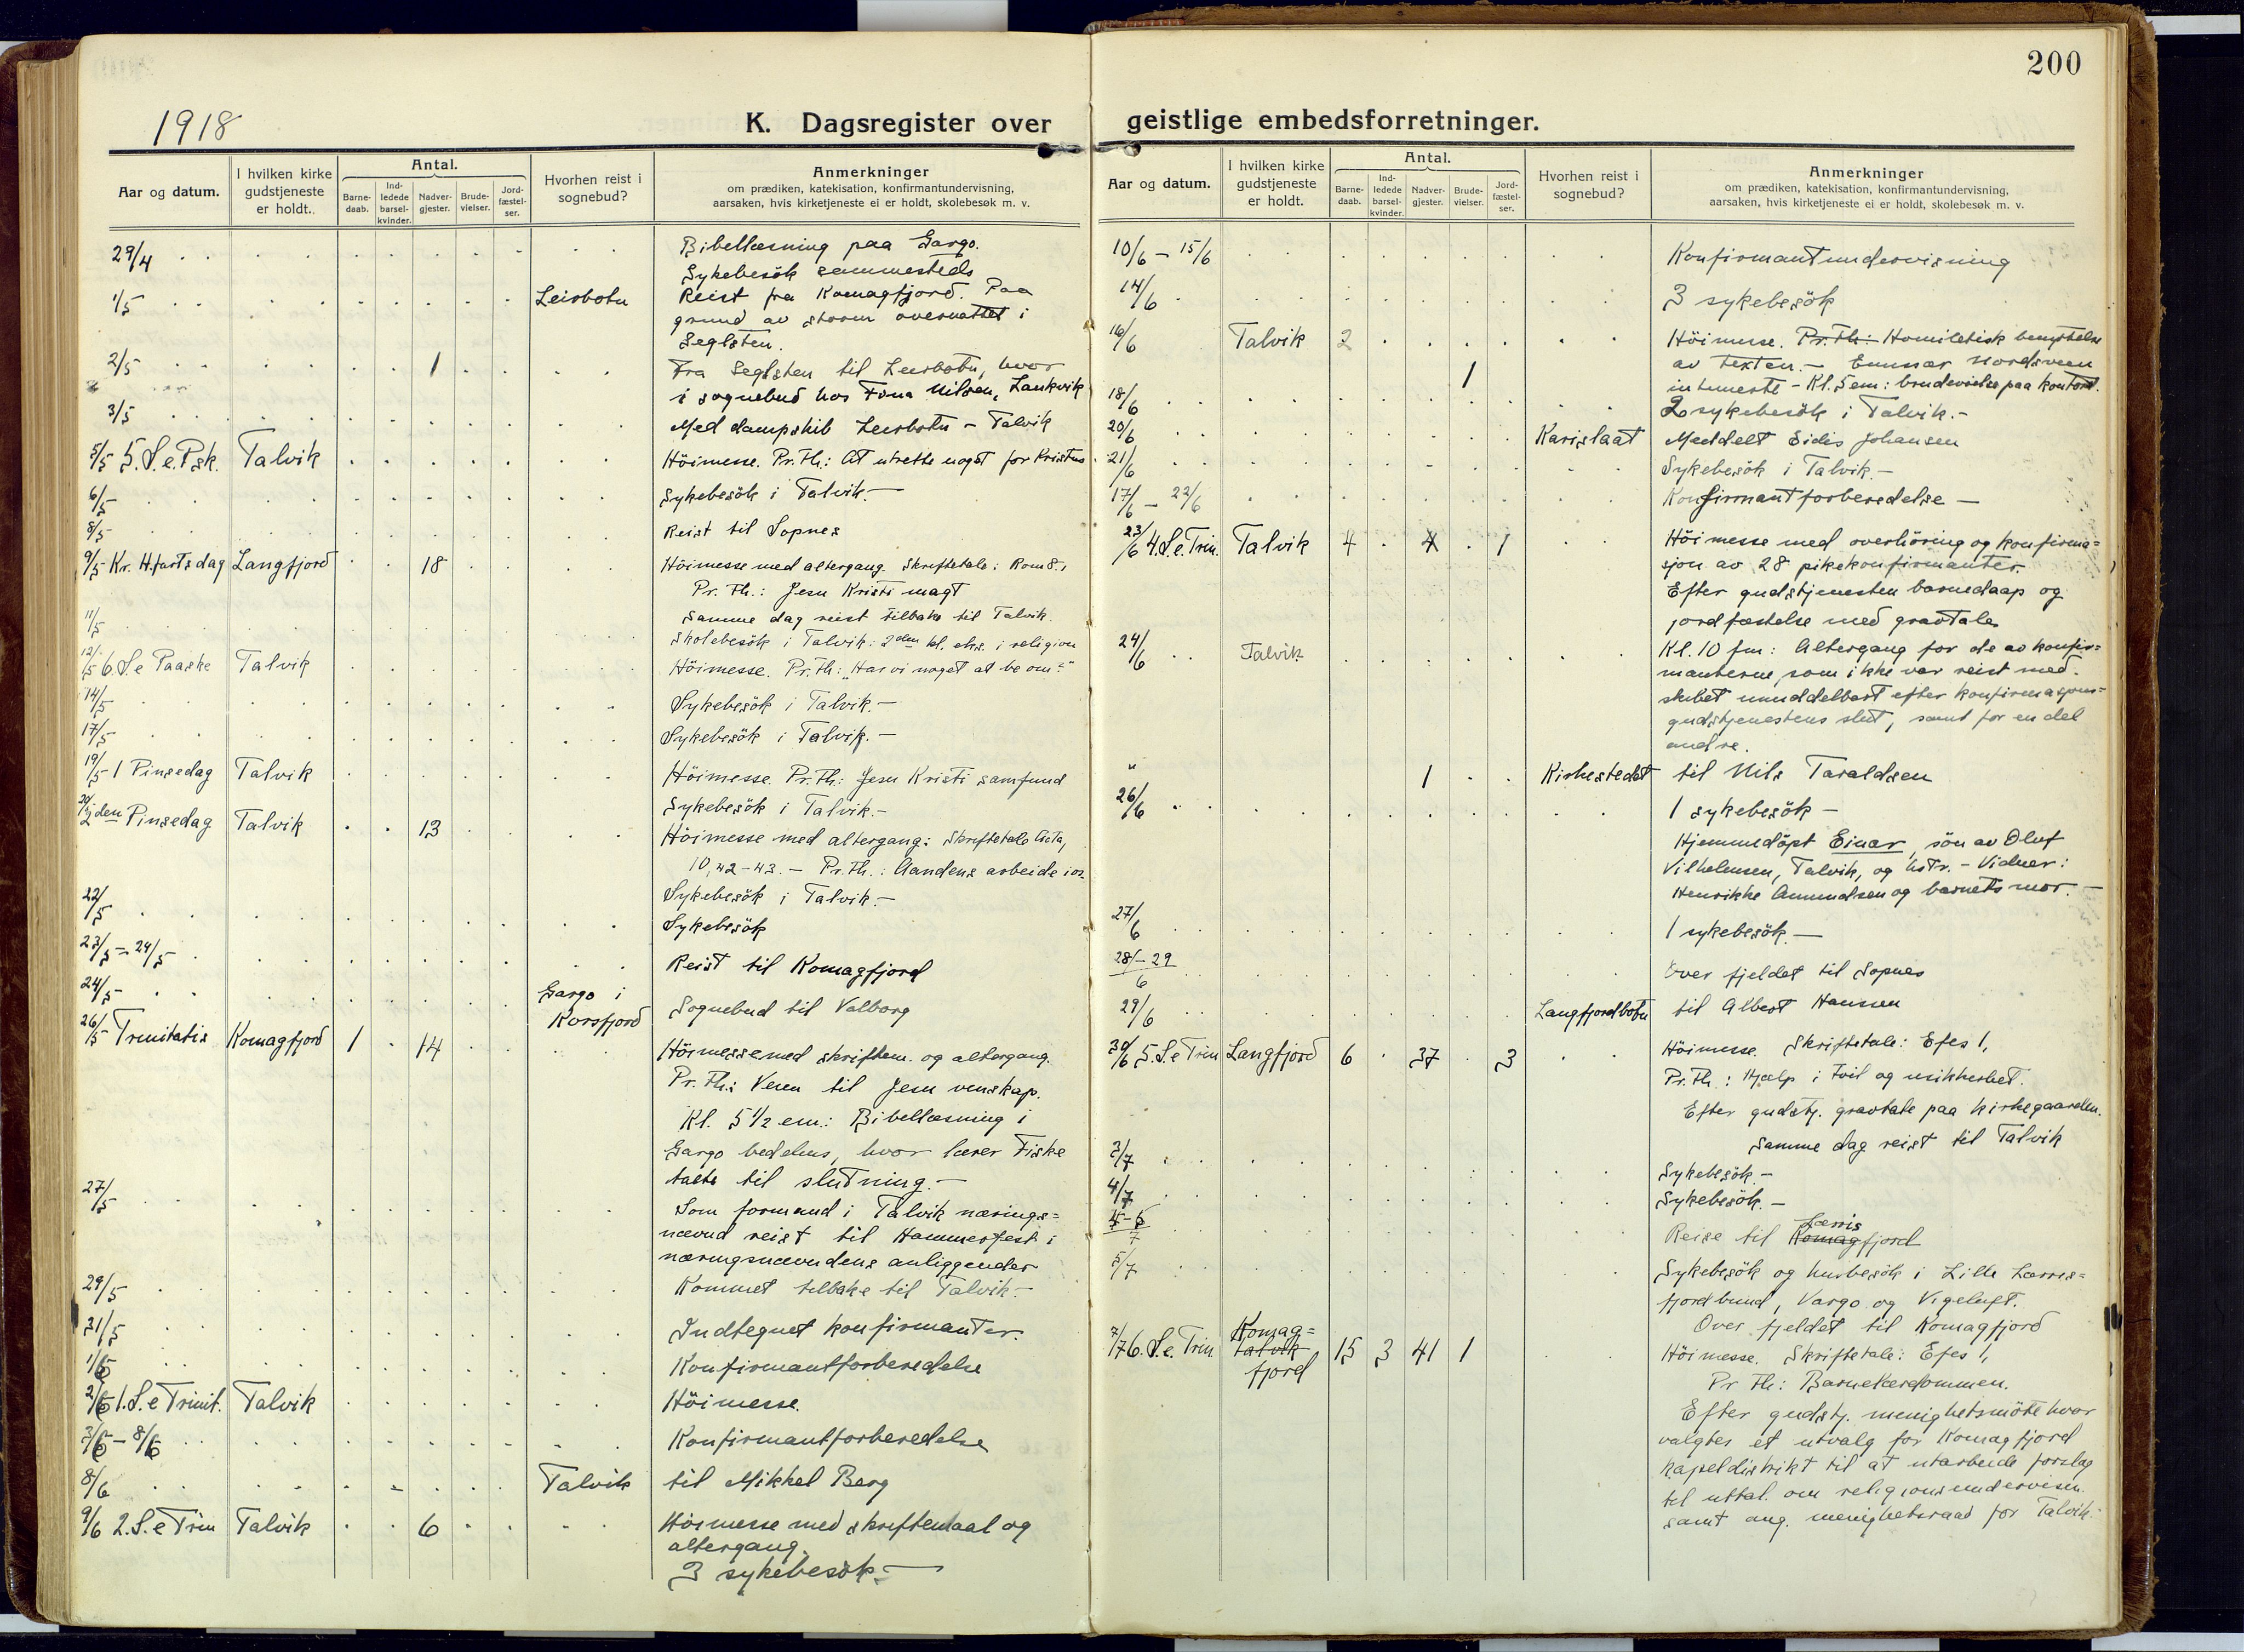 200
1918
K. Dagsregister over geistlige embedsforretninger.
Aar og datum.
I hvilken kirke gudstjeneste er holdt.
Antal.
Barnedaab.
Indledede barselkvinder.
Nadvergjester.
Brudevielser.
Jordfæstelser.
Hvorhen reist i sognebud?
Anmerkninger
om prædiken, katekisation, konfirmantundervisning,
aarsaken, hvis kirketjeneste ei er holdt, skolebesøk m. v.
29/4 Bibellæsning paa Gargo.
Sykebesök sammesteds
1/5 Leirbotn Reist fra Komagfjord. Paa
grund av storm overnattet i
Seglsten.
2/5 1 Fra Seglsten til Leirbotn, hvor
i sognebud hos Nilsen,
3/5 Med dampskib Leirbotn - Talvik
5/5 5. S. e. Psk. Talvik Höimesse. Pr. Th.: At utrette noget for Kristus
6/5 Sykebesök i Talvik.-
8/5 Reist til Sopnes
9/5 Kr. H.fartsdag Langfjord 18 Höimesse med altergang. Skriftetale: Rom 8,
Pr. Th.: Jesu Kristi magt
Samme dag reist tilbake til Talvik.
11/5 Skolebesök i Talvik: 2den kl. eks. i religion
12/5 6. S. e Paaske Talvik Höimesse. Pr. Th.: "Har vi noget at be om?"
14/5 Sykebesök i Talvik.-
17/5 Sykebesök i Talvik.-
19/5 1 Pinsedag Talvik Höimesse. Pr. Th.: Jesu Kristi samfund
Sykebesök i Talvik.-
20/5 2den Pinsedag Talvik 13 Höimesse med altergang: Skriftetale Acta,
10,42-43.- Pr. Th.: Aandens arbeide i os.
Sykebesök i Talvik.-
22/5 Sykebesök
23/5 - 24/5 Reist til Komagfjord
24/5 Gargo i
Korsfjord Sognebud til Valborg
26/5 Trinitatis Komagfjord 1 14 Höimesse med skriftem. og altergang.
Pr. Th.: Veien til Jesu venskap.
Kl. 5 1/2 em.: Bibellæsning i
Gargo bedehus, hvor lærer Fiske
talte til slutning.-
27/5 Som formand i Talvik nærings=
nævnd reist til Hammerfest i
næringsnævndens anliggender
29/5 Kommet tilbake til Talvik.-
31/5 Indtegnet konfirmanter.
1/6 Konfirmantforberedelse
2/6 1. S. e Trinit. Talvik Höimesse.
3/6 - 8/6 Konfirmantforberedelse
8/6 Talvik til Mikkel Berg
9/6 2. S. e Trin Talvik 6 Höimesse med skriftemaal og
altergang.
3 sykebesök.-
Aar og datum.
I hvilken kirke gudstjeneste er holdt.
Antal.
Barnedaab.
Indledede barselkvinder.
Nadvergjester.
Brudevielser.
Jordfæstelser.
Hvorhen reist i sognebud?
Anmerkninger
om prædiken, katekisation, konfirmantundervisning,
aarsaken, hvis kirketjeneste ei er holdt, skolebesøk m. v.
10/6 - 15/6 Konfirmantundervisning
14/6 3 sykebesök
16/6 Talvik 2 Höimesse. Pr. Th: Homiletisk benyttelse
av texten.-
1 - Kl. 5 em: brudevielse paa kontoret.
18/6 2 sykebesök i Talvik.-
20/6 Karislaat Meddelt Eidis Johansen
21/6 Sykebesök i Talvik-
17/6 - 22/6 Konfirmantforberedelse-
23/6 4. S. e. Trin. Talvik 4 4 1 Höimesse med overhöring og konfirma=
sjon av 28 pikekonfirmanter.
Efter gudstjenesten barnedaap og
jordfæstelse med gravtale
24/6 Talvik Kl. 10 fm: Altergang for de av konfir=
manterne, som ikke var reist med
skibet umiddelbart efter konfirmasjons=
gudstjenestens slut, samt for en del
andre.
" 1 Kirkestedet til Nils Taraldsen
26/6 1 sykebesök-
Hjemmedöpt Einar, sön av Oluf
Vilhelmsen, Talvik, og hstr. - Vidner:
Henrikke Amundsen og barnets mor.-
27/6 1 sykebesök.-
28-29/6 Over fjeldet til Sopnes
29/6 Langfjordbotn til Albert Hansen
30/6 5. S. e Trin Langfjord 6 37 3 Höimesse. Skriftetale: Efes 1,
Pr. Th.: Hjælp i tvil og usikkerhet.
Efter gudstj. gravtale paa kirkegaarden.
Samme dag reist til Talvik
3/7 Sykebesök.-
4/7 Sykebesök.-
4-5/7 Reise til Komagfjord Lærris
5/7 Sykebesök og husbesök i Lille Lærris=
fjordbund, Vargo og Vigeluft.
Over fjeldet til Komagfjord
7/7 6. S. e. Trin. Talvik Komag=
fjord 15 3 41 1 Höimesse. Skriftetale: Efes 1,
Pr Th: Barnekaredommen.
Efter gudstj. menighetsmöte hvor
valgtes et utvalg for Komagfjord
kapeldistrikt til at utarbeide forslag
til uttal. om religionsundervisn.
samt ang. menighetsraad for Talvik.-